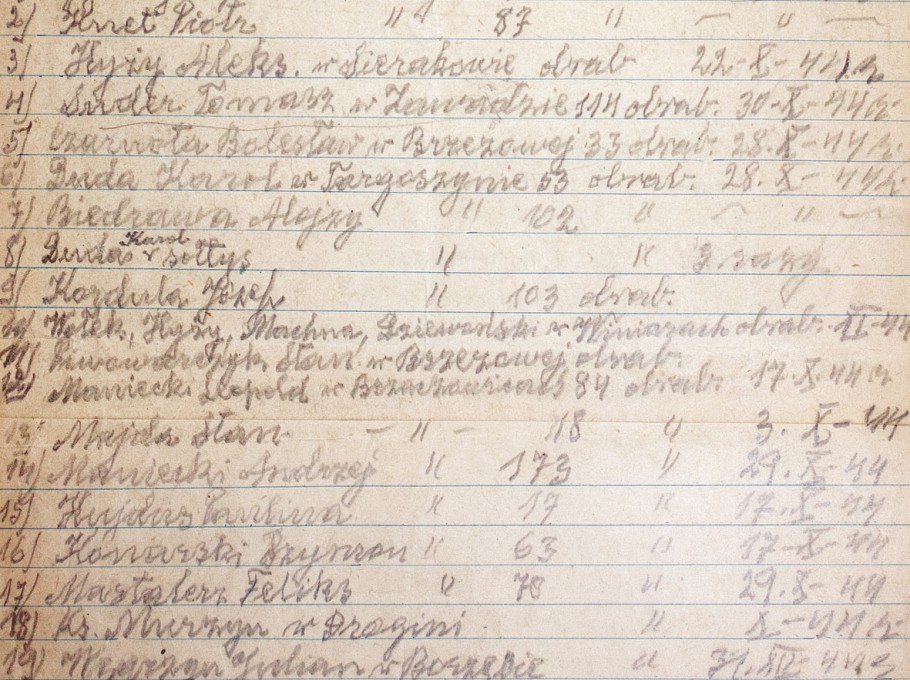 2) Knet Piotr " 87 " — " —
3) Hyży Aleks. w Sierakowie obrab 22-X-44 r.
4) Suder Tomasz w Zawadzie 114 obrab. 30-X-44 r.
5) Czarnota Bolesław w Brzezowej 33 obrab. 28.X-44 r.
6) Duda Karol w Targoszynie 53 obrab. 28.X-44 r.
7) Biedrawa Alojzy " 102 " — " —
8) Dudas Karol sołtys " " 3 razy.
9) Kordula Józef " 103 obrab.
10) Wołek, Hyży, Machna, Dziewoński w Winiarach obrab. XI-44
11) Lwowarczyk Stan. w Brzezowej obrab.
12) Maniecki Leopold w 84 obrab. 17.X.44 r.
13 Majda Stan — " — 18 " 3. X-44
14) Maniecki Andrzej " 173 " 29.X-44
15) Kujdas " 17 " 17.X-44
16) Konarski Szymon " 63 " 17-X-44
17) Mastalerz Feliks " 78 " 29.X-44
18) Ks. Murzyn w Drogini " X-44 r.
19) Węgrzyn Julian w " 31.XII-44 r.